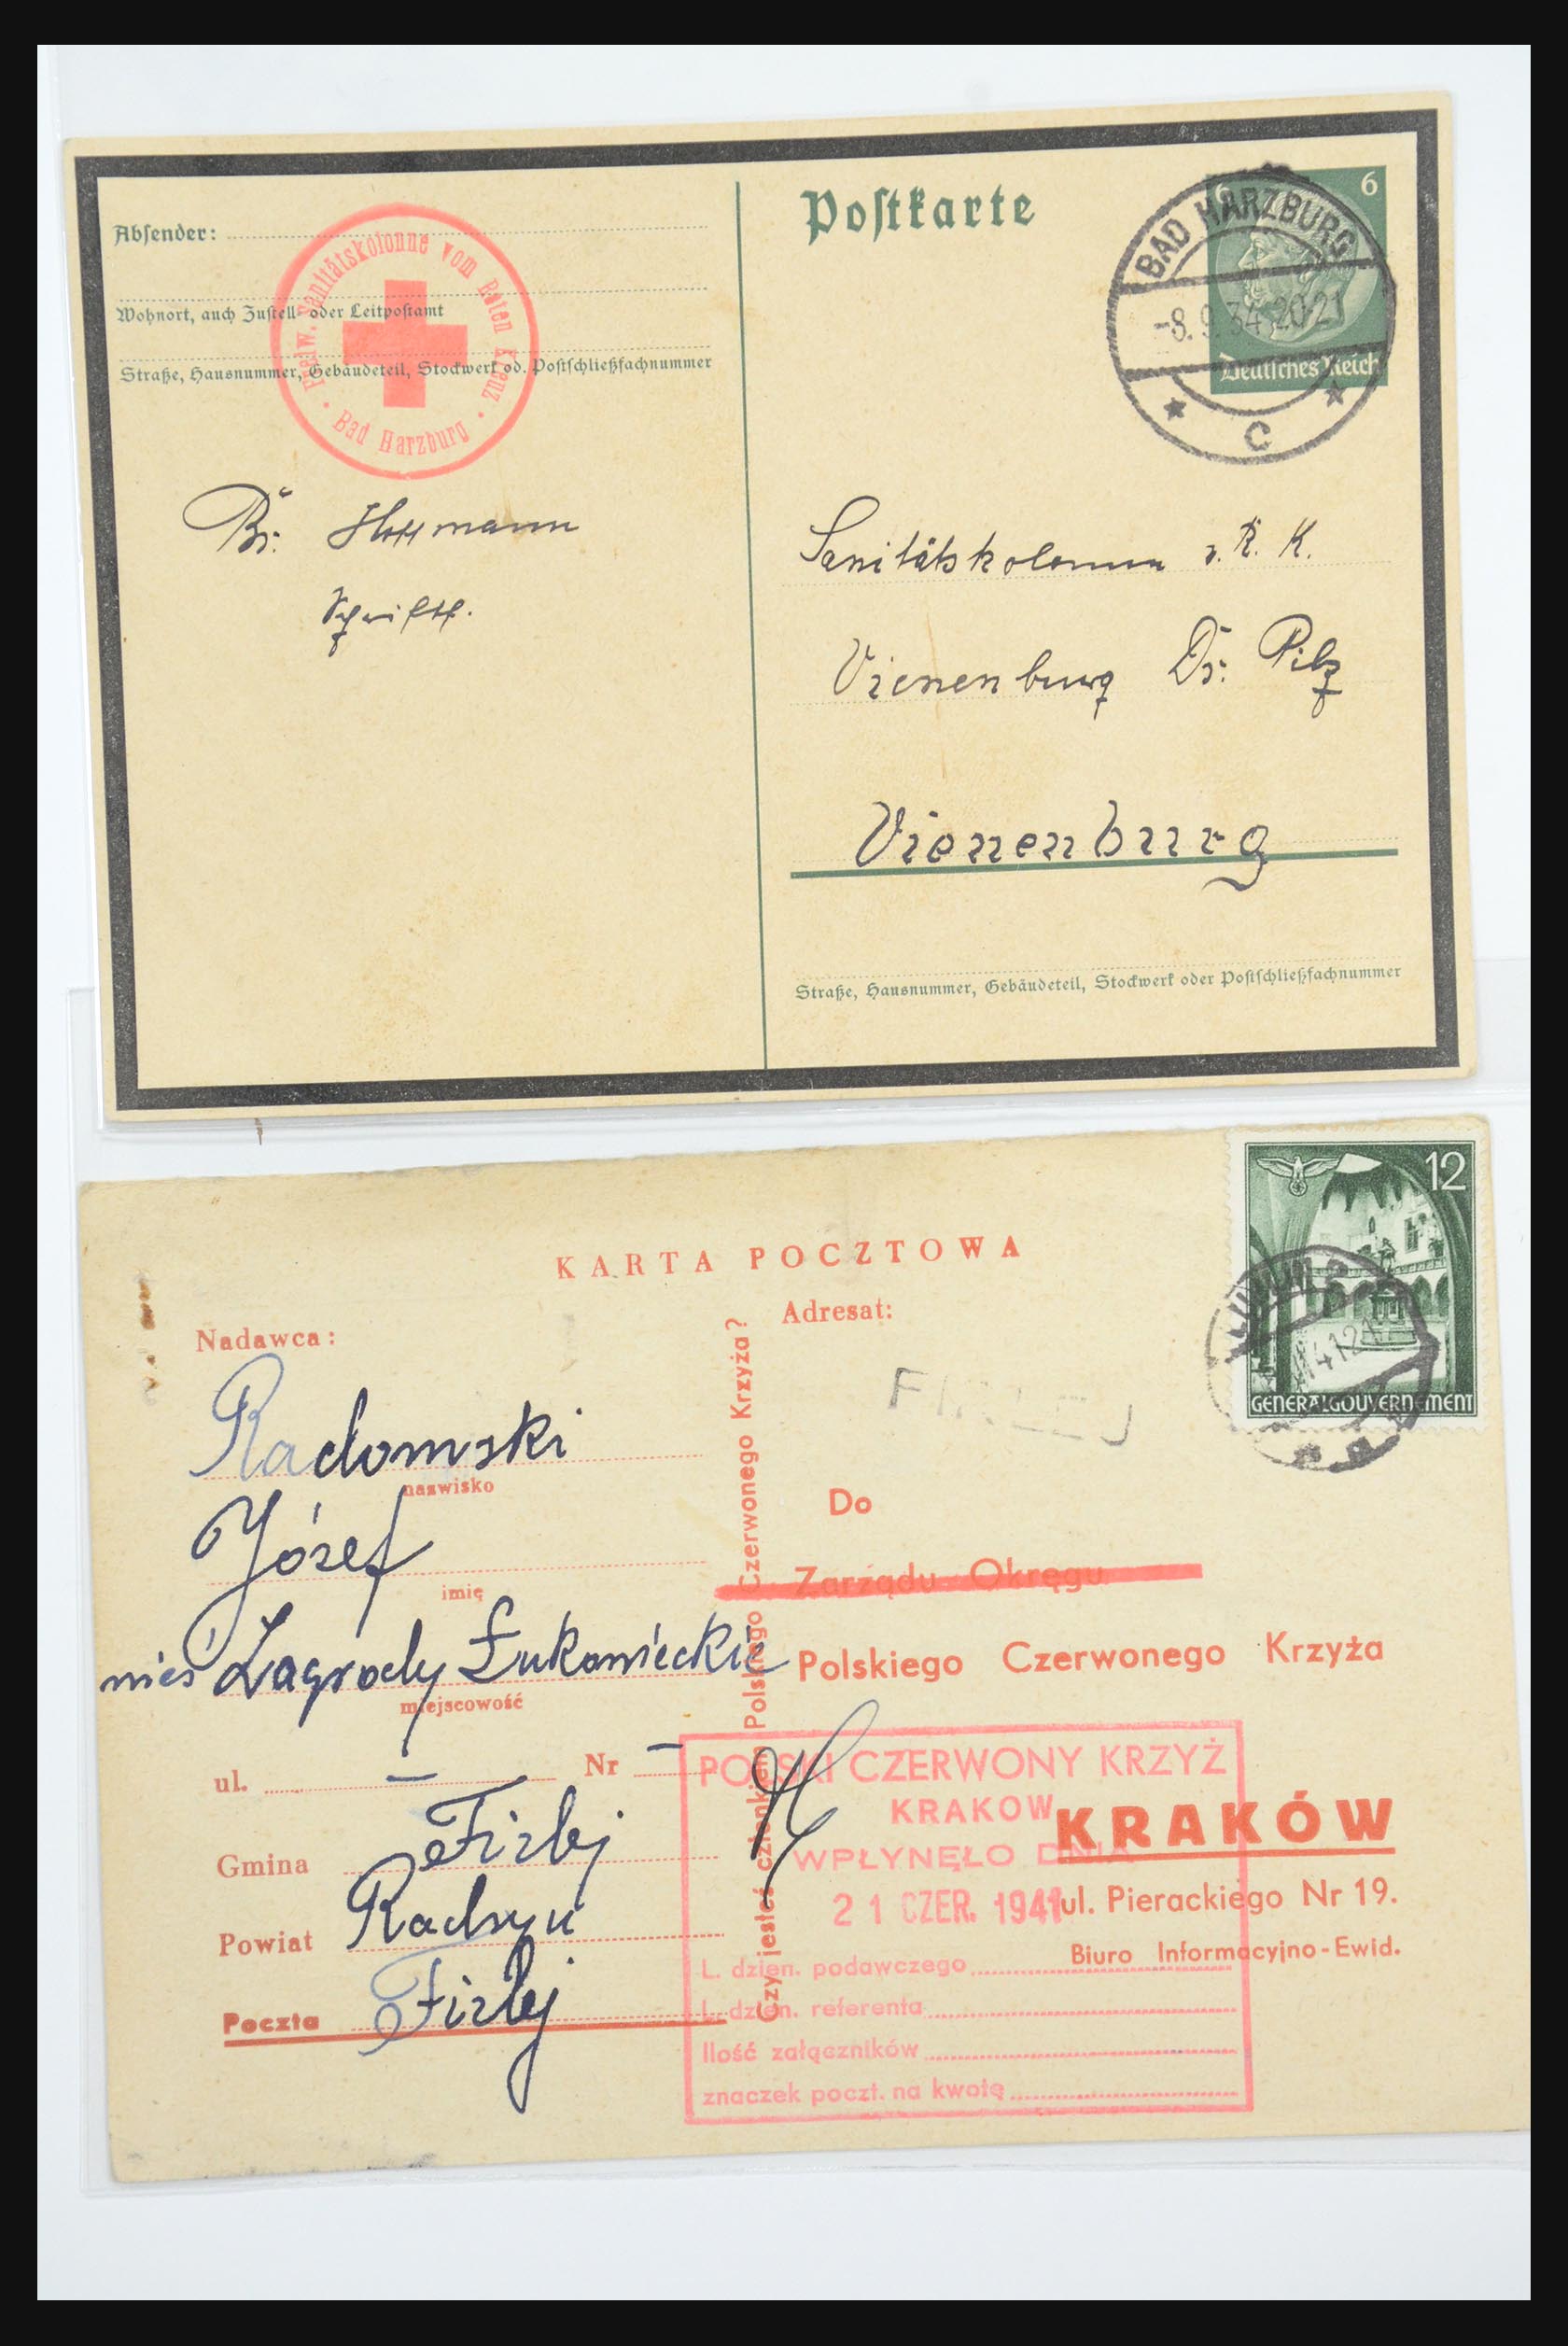 Postkarte
6
6
Deutsches Reich
BAD HARZBURG
-8.9.34 20-21
C
Absender:
Wohnort, auch Zustell- oder Leitpostamt
Straße, Hausnummer, Gebäudeteil, Stockwerk od. Postschließfachnummer
Freiw. Sanitätskolonne vom Roten Kreuz
Bad Harzburg
Br. Hoffmann
Sanitätskolonne v. R. K.
Vienenburg Dr. Pilz
Vienenburg
Straße, Hausnummer, Gebäudeteil, Stockwerk oder Postschließfachnummer
12
GENERALGOUVERNEMENT
KARTA POCZTOWA
Nadawca:
Radomski
nazwisko
Józef
imię
Zagrody Łukowieckie
miejscowość
ul. – Nr –
Gmina Firlej
Powiat Radzyń
Poczta Firlej
Czy jesteś członkiem Polskiego Czerwonego Krzyża?
Adresat:
FIRLEJ
Do
Zarządu Okręgu
Polskiego Czerwonego Krzyża
KRAKÓW
ul. Pierackiego Nr 19.
Biuro Informacyjno-Ewid.
POLSKI CZERWONY KRZYŻ
KRAKOW
WPŁYNĘŁO DNIA
21 CZER. 1941
L. dzien. podawczego
L. dzien. referenta
Ilość załączników
znaczek poczt. na kwotę